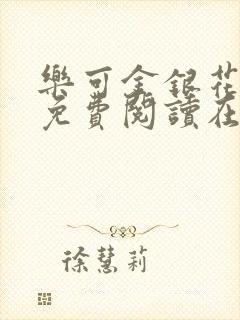 樂可金銀花
免費閱讀在
徐慧莉